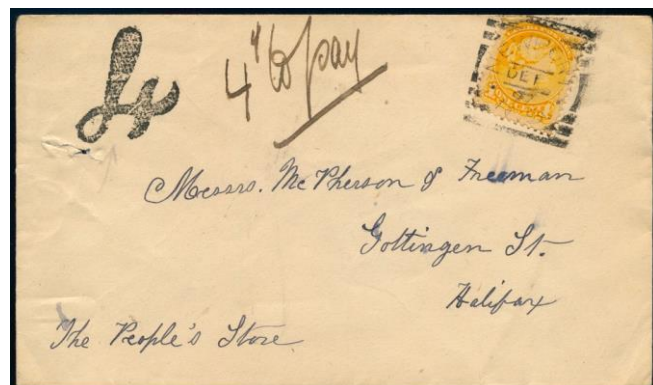 4 to pay
DE
Messrs. McPherson & Freeman
Gottingen St.
Halifax
The People's Store